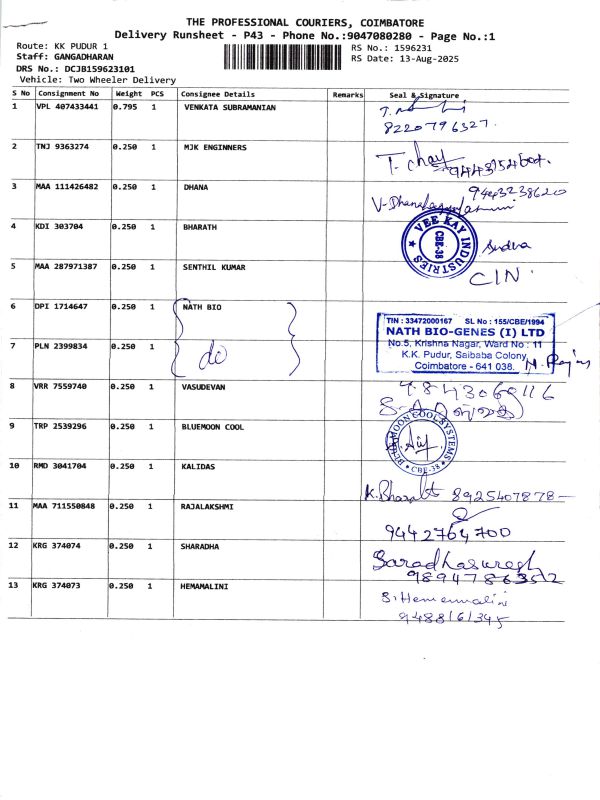 THE PROFESSIONAL COURIERS, COIMBATORE
Delivery Runsheet - P43 - Phone No.:9047080280 - Page No.:1
Route: KK PUDUR 1 RS No.: 1596231
Staff: GANGADHARAN RS Date: 13-Aug-2025
DRS No.: DCJB159623101
Vehicle: Two Wheeler Delivery
S No Consignment No Weight PCS Consignee Details Remarks Seal & Signature
1 VPL 407433441 0.795 1 VENKATA SUBRAMANIAN
8220796327.
2 TNJ 9363274 0.250 1 MJK ENGINNERS
3 MAA 111426482 0.250 1 DHANA 9443238620
4 KDI 303704 0.250 1 BHARATH VEE KAY INDUSTRIES CBE-38 Sudha
5 MAA 287971387 0.250 1 SENTHIL KUMAR CIN.
6 DPI 1714647 0.250 1 NATH BIO
TIN : 33472000167 SL No : 155/CBE/1994
NATH BIO-GENES (I) LTD
No.5, Krishna Nagar, Ward No : 11
7 PLN 2399834 0.250 1 do K.K. Pudur, Saibaba Colony,
Coimbatore - 641 038.
8 VRR 7559740 0.250 1 VASUDEVAN
9 TRP 2539296 0.250 1 BLUEMOON COOL BLUEMOON COOL SYSTEMS CBE-38
10 RMD 3041704 0.250 1 KALIDAS
K. Bharath 8925407878
11 MAA 711550848 0.250 1 RAJALAKSHMI
9442764700
12 KRG 374074 0.250 1 SHARADHA Saradhasuresh
9894786352
13 KRG 374073 0.250 1 HEMAMALINI S. Hemamalini
9488161345